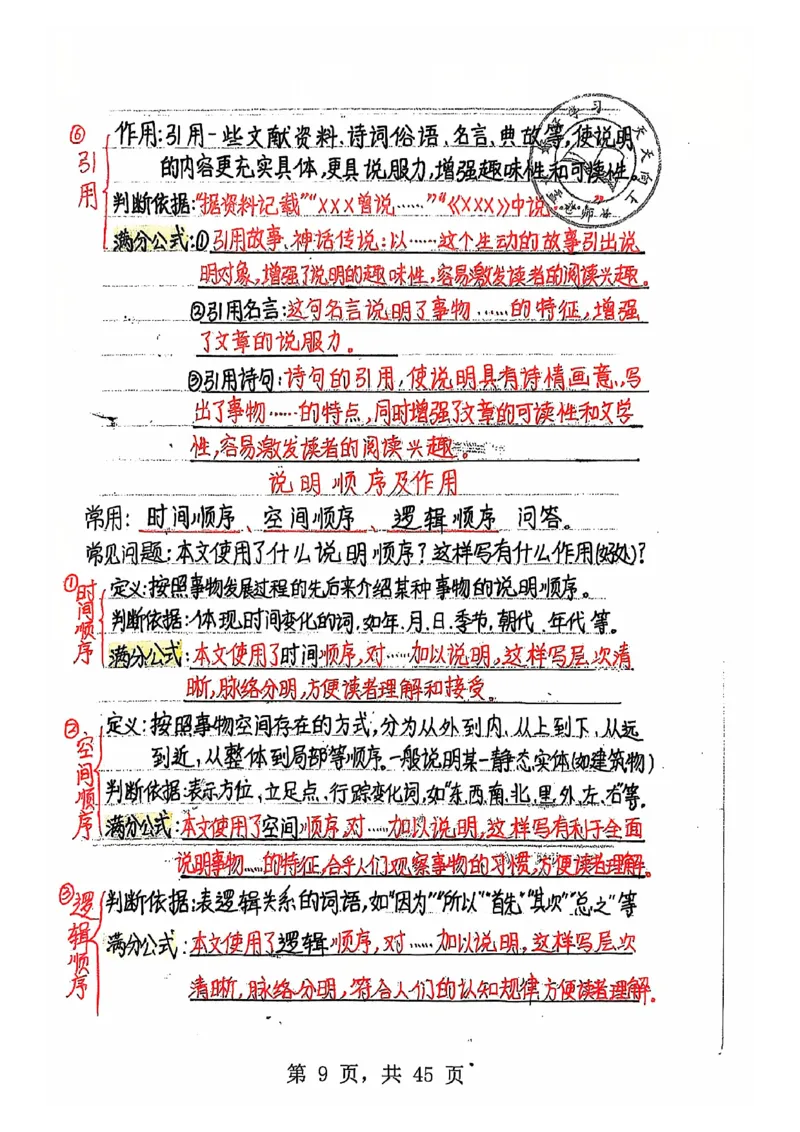 ⑥引用
作用:引用一些文献资料、诗词俗语、名言、典故等,使说明
的内容更充实具体,更具说服力,增强趣味性和可读性。
判断依据:“据资料记载”“xxx曾说……”“《xxx》中说
满分公式:①引用故事、神话传说:以……这个生动的故事引出说
明对象,增强了说明的趣味性,容易激发读者的阅读兴趣。
②引用名言:这句名言说明了事物……的特征,增强
了文章的说服力。
③引用诗句:诗句的引用,使说明具有诗情画意,写
出了事物……的特点,同时增强了文章的可读性和文学
性,容易激发读者的阅读兴趣。
说明顺序及作用
常用: 时间顺序、空间顺序、逻辑顺序 问答。
常见问题:本文使用了什么说明顺序?这样写有什么作用(好处)?
①时间顺序
定义:按照事物发展过程的先后来介绍某种事物的说明顺序。
判断依据:体现时间变化的词.如年、月、日.季节,朝代、年代等。
满分公式:本文使用了时间顺序,对……加以说明,这样写层次清
晰,脉络分明,方便读者理解和接受。
②空间顺序
定义:按照事物空间存在的方式,分为从外到内、从上到下、从远
到近,从整体到局部等顺序。一般说明某一静态实体(如建筑物)
判断依据:表示方位,立足点、行踪变化词,如“东、西、南、北、里、外、左、右”等。
满分公式:本文使用了空间顺序,对……加以说明,这样写有利于全面
说明事物……的特征,合乎人们观察事物的习惯,方便读者理解。
③逻辑顺序
判断依据:表逻辑关系的词语,如“因为”“所以”“首先”“其次”“总之”等
满分公式:本文使用了逻辑顺序,对……加以说明,这样写层次
清晰,脉络分明,符合人们的认知规律方便读者理解。
第 9 页，共 45 页